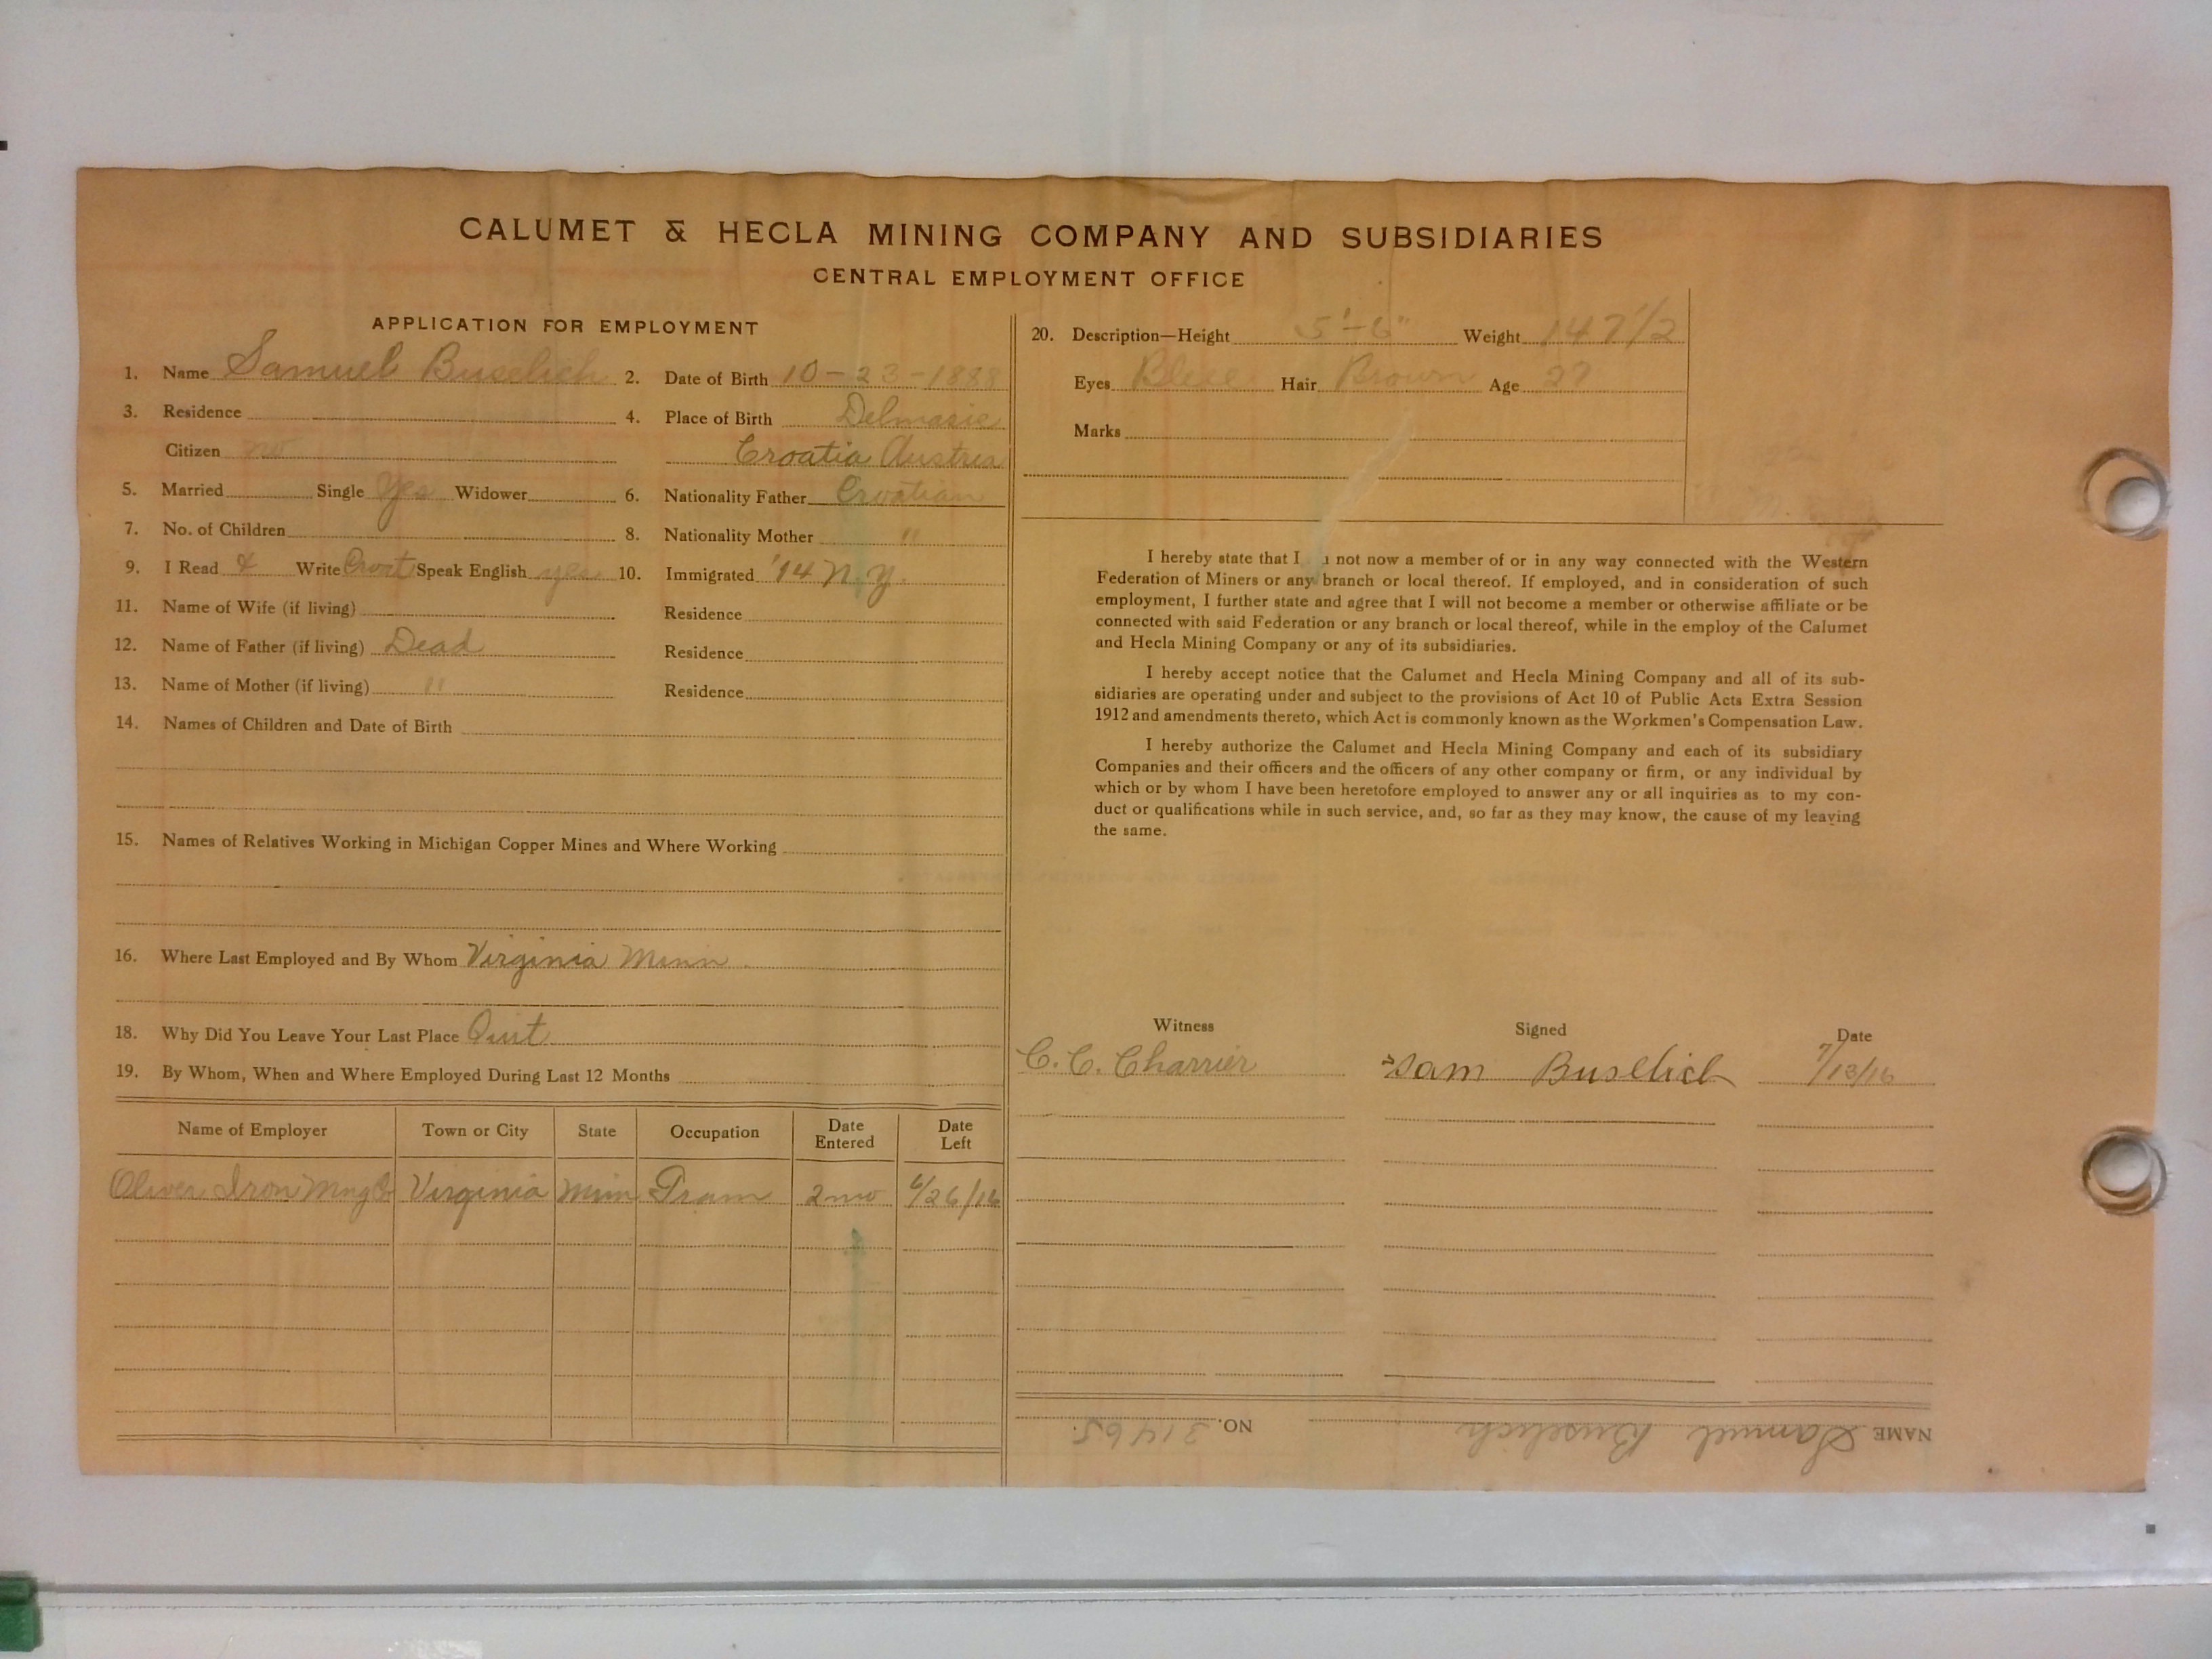 CALUMET & HECLA MINING COMPANY AND SUBSIDIARIES
CENTRAL EMPLOYMENT OFFICE
APPLICATION FOR EMPLOYMENT
1. Name Samuel Buselich 2. Date of Birth 10-23-1888
3. Residence 4. Place of Birth Delmasie
Citizen no Croatia Austria
5. Married Single Yes Widower 6. Nationality Father Croatian
7. No. of Children 8. Nationality Mother "
9. I Read & Write Croat Speak English yes 10. Immigrated '14 N.Y.
11. Name of Wife (if living) Residence
12. Name of Father (if living) Dead Residence
13. Name of Mother (if living) " Residence
14. Names of Children and Date of Birth
15. Names of Relatives Working in Michigan Copper Mines and Where Working
16. Where Last Employed and By Whom Virginia Minn
18. Why Did You Leave Your Last Place Quit
19. By Whom, When and Where Employed During Last 12 Months
Name of Employer Town or City State Occupation Date Entered Date Left
Oliver Iron Mng Co Virginia Minn Tram 2 mo 6/26/16
20. Description—Height 5'-6" Weight 147 1/2
Eyes Blue Hair Brown Age 27
Marks
I hereby state that I not now a member of or in any way connected with the Western
Federation of Miners or any branch or local thereof. If employed, and in consideration of such
employment, I further state and agree that I will not become a member or otherwise affiliate or be
connected with said Federation or any branch or local thereof, while in the employ of the Calumet
and Hecla Mining Company or any of its subsidiaries.
I hereby accept notice that the Calumet and Hecla Mining Company and all of its sub-
sidiaries are operating under and subject to the provisions of Act 10 of Public Acts Extra Session
1912 and amendments thereto, which Act is commonly known as the Workmen's Compensation Law.
I hereby authorize the Calumet and Hecla Mining Company and each of its subsidiary
Companies and their officers and the officers of any other company or firm, or any individual by
which or by whom I have been heretofore employed to answer any or all inquiries as to my con-
duct or qualifications while in such service, and, so far as they may know, the cause of my leaving
the same.
Witness Signed Date
C. C. Charrier Sam Buselich 7/13/16
NAME Samuel Buselich NO. 31465